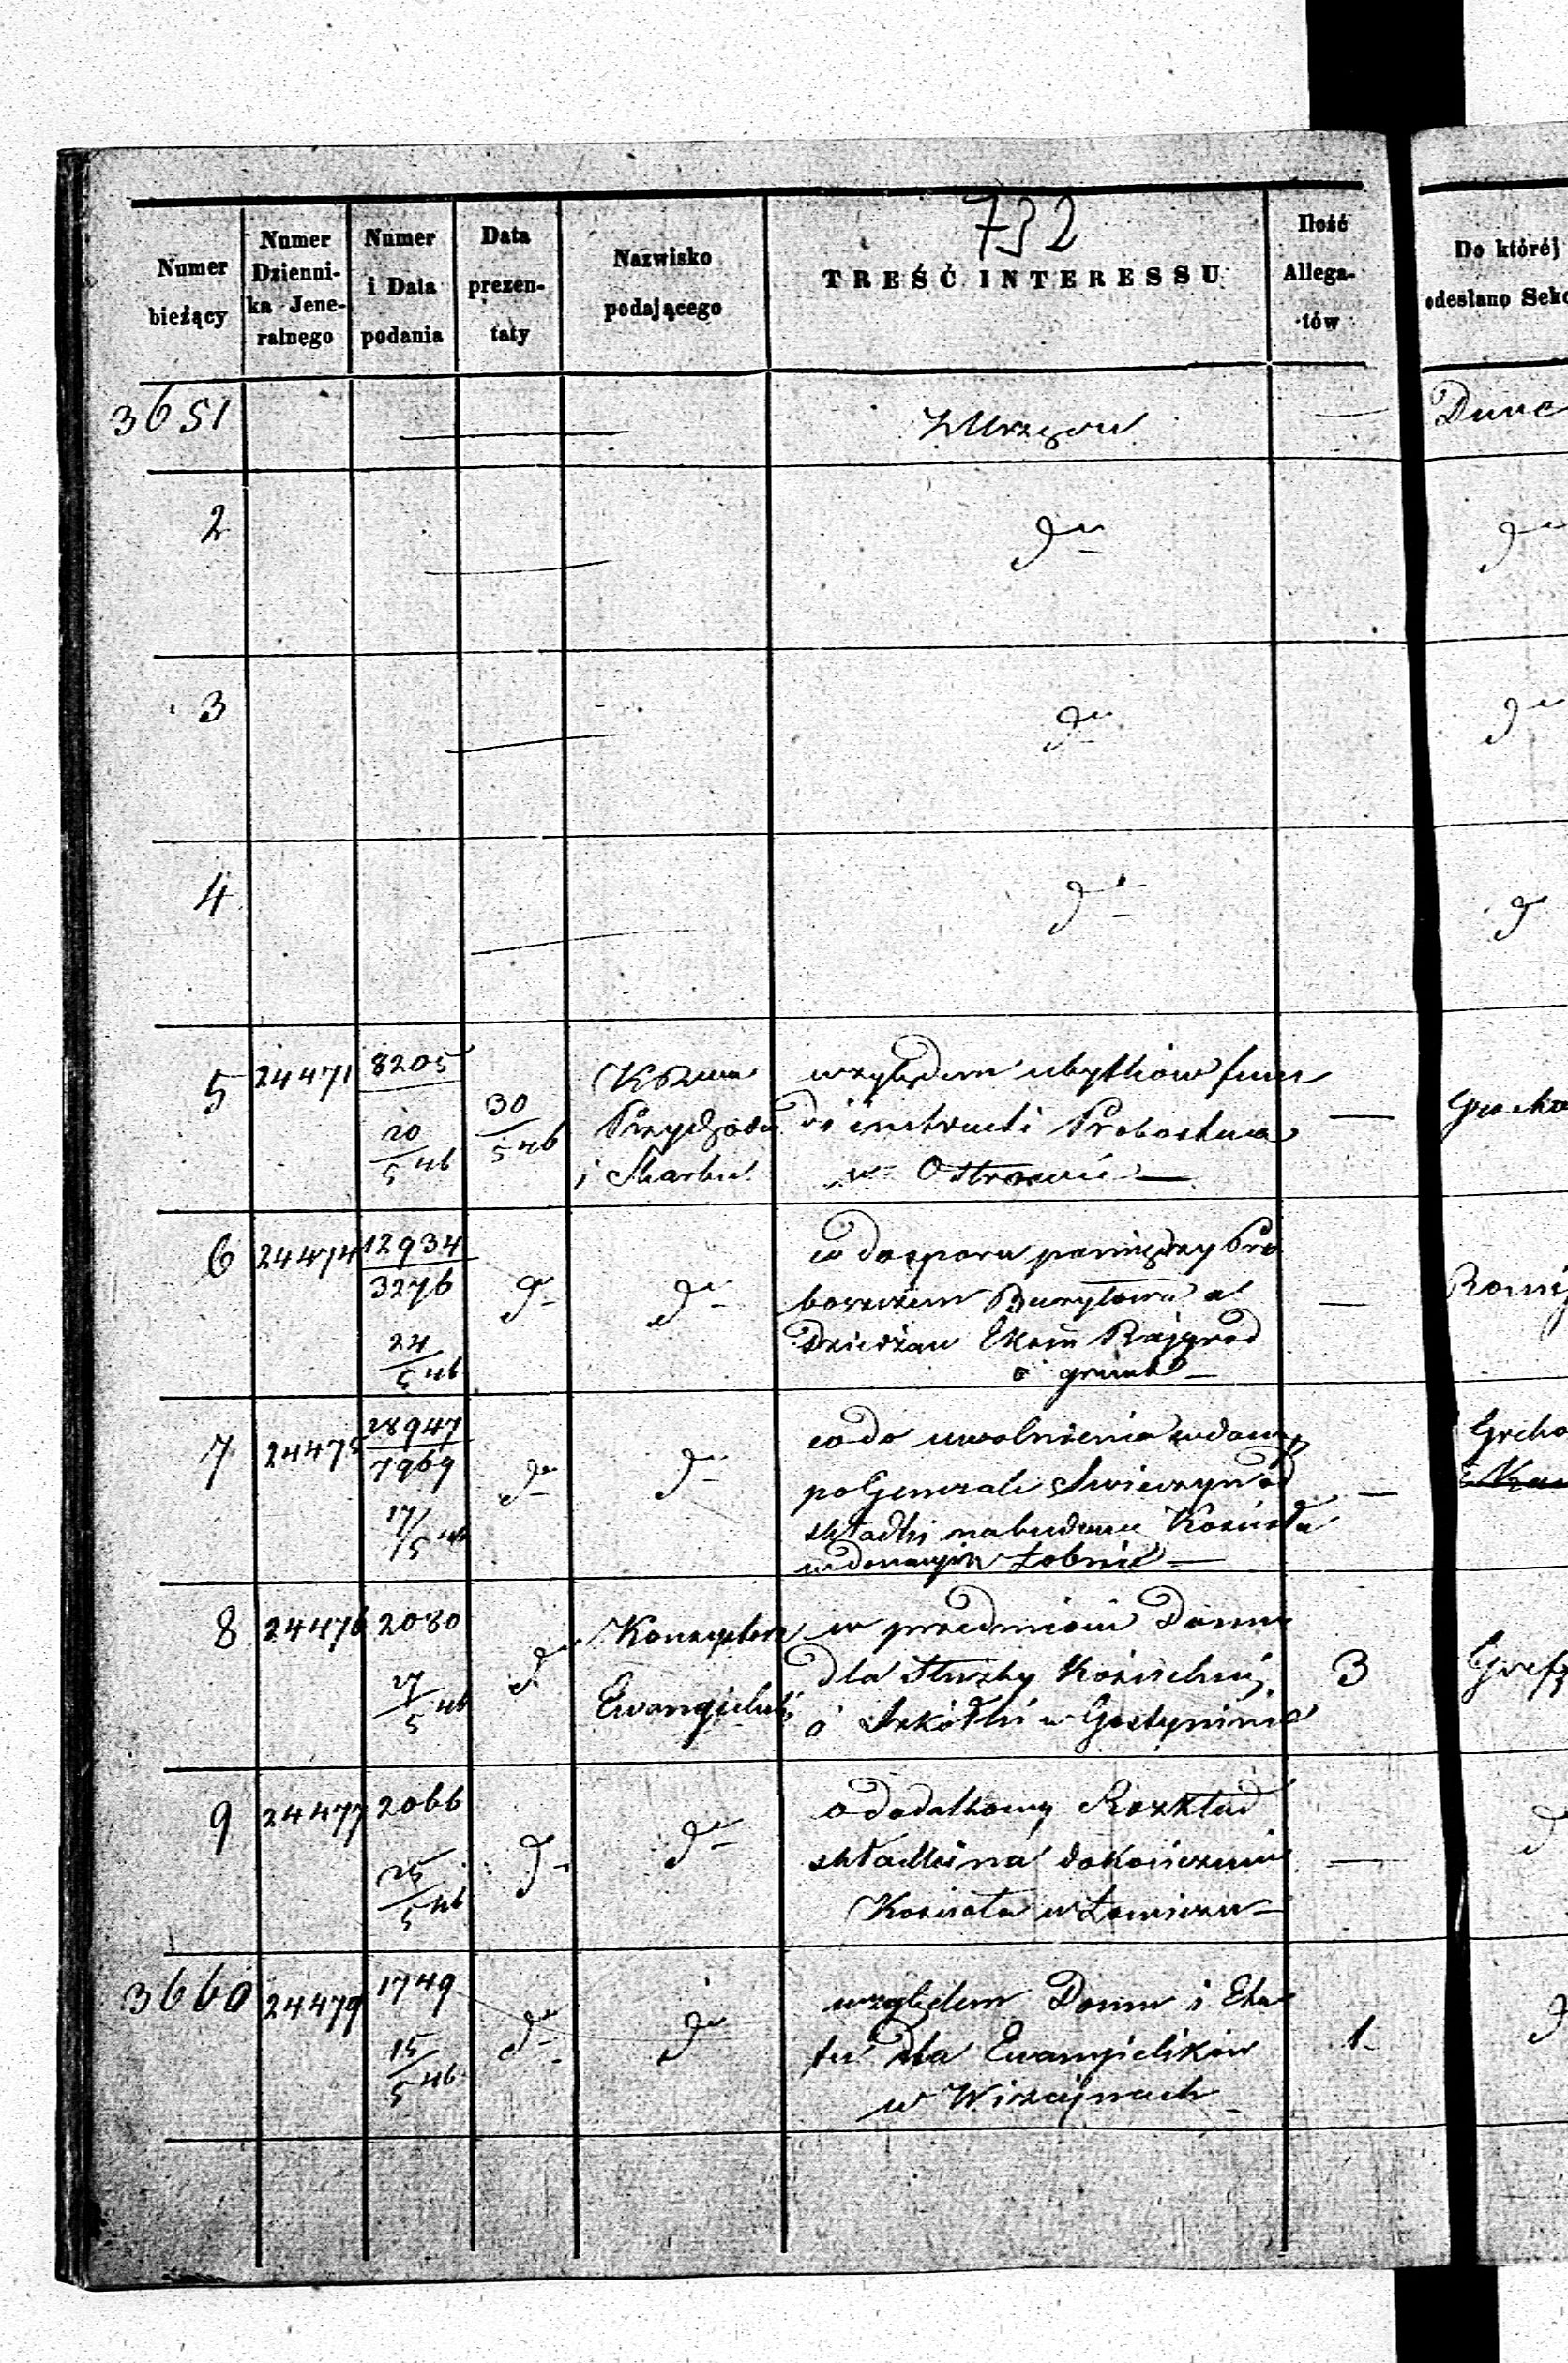 732
Numer bieżący
Numer Dzienni-ka Jene-ralnego
Numer i Data podania
Data prezen-taty
Nazwisko podającego
TREŚĆ INTERESSU
Ilość Allega-tów
Do któréj odesłano Sekc
3651 — Z Urzędu —
2 — dto dto
3 — dto dto
4 — dto d
5 24471 8205
20/5 46 30/5 46
Przychodów
i Skarbu
względem ubytków fun
do instrukti Probostwa
w Ostrowie —
—
6 24474 12934
3276
24/5 46 dto dto
co do sporu pomiędzy Pro
boszczem a
Dzierżaw Ekom Rajgród
o grunt —
—
7 24475 28947
7969
17/5 46 dto dto
co do uwolnienia wdowy
po Generale od
składki na budowę Kościoła
—
8 24476 2030
27/5 46 dto
Konsystorz
Ewangielicki
w przedmiocie Domu
dla Służby Kościelnéj
o Szkółki w Gostyninie
3
9 24477 2066
25/5 46 dto dto
o dodatkowy Rozkład
składki na dokończenie
Kościoła w Łowiczu —
—
3660 24479 1749
15/5 46 dto dto
względem Domu i Eta
tu dla Ewangielików
w Wiżajnach
1